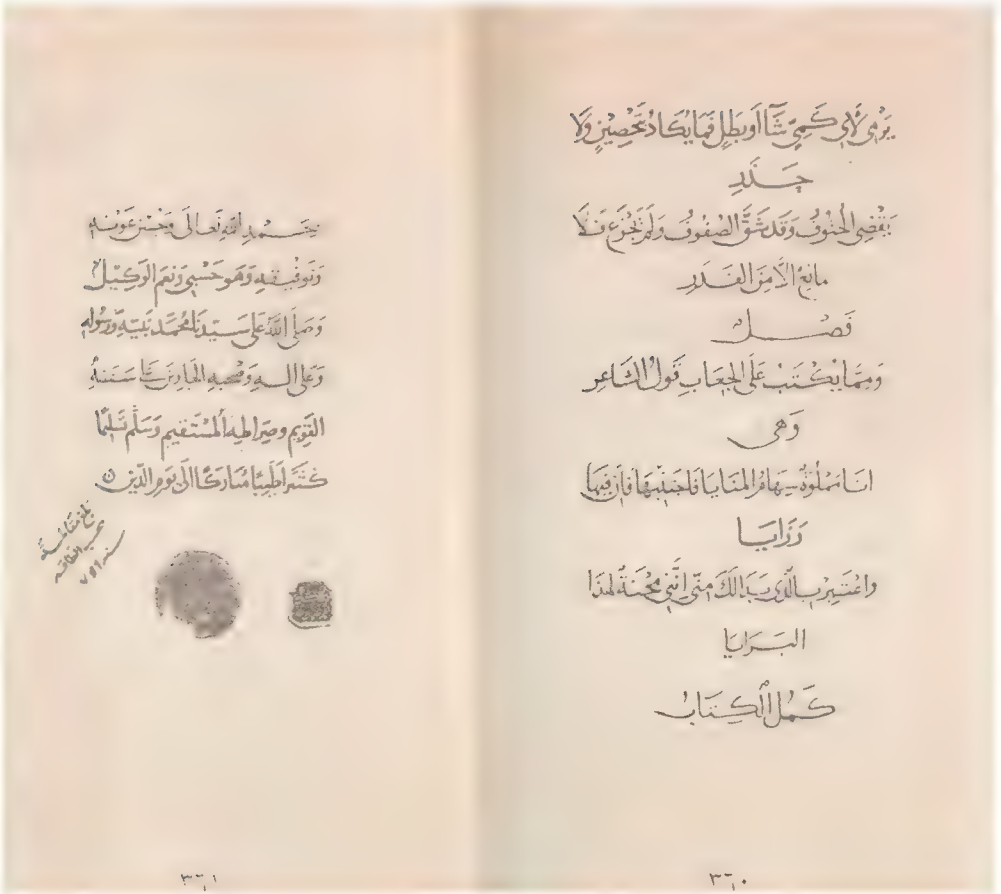 يَرْمِي لَأَيِّ كَمِيٍّ شَاءَ أَوْ بَطَلٍ فَمَا يُكَادُ بِتَحْصِينٍ وَلَا
جَلَدِ
يَقْضِي الْحُتُوفُ وَقَدْ شَقَّ الصُّفُوفُ وَلَمْ يَجْزَعْ فَلَا
مَانِعٌ إلَّا مِنَ القَدَرِ
فَصْل
وَمِمَّا يُكْتَبُ عَلَى الجِعَابِ قَوْلُ الشَّاعِرِ
وَهِيَ
انَا مَمْلُوَةٌ سِهَامُ المَنَايَا فَاجْتَنِبْهَا فَإِنَّ فِيهَا
رَزَايَا
وَاعْتَبِرْ بِالَّذِي بَدَا لَكَ مِنِّي إنَّنِي مِحْنَةٌ لِهَذَا
البَرَايَا
كَمُلَ الْكِتَابُ
بحَمْدِ اللهِ تَعَالَى وَحُسْنِ عَوْنِهِ
وَتَوْفِيقِهِ وَهُوَ حَسْبِي وَنِعْمَ الوَكِيلُ
وَصَلَّى اللَّهُ عَلَى سَيِّدِنَا مُحَمَّدٍ نَبِيِّهِ وَرَسُولِهِ
وَعَلَى آلِهِ وَصَحْبِهِ الهَادِينَ سَنَنَهُ
القَوِيمَ وَصِرَاطِهِ المُسْتَقِيمِ وَسَلَّمَ تَسْلِيمًا
كَثِيرًا طَيِّبًا مُبَارَكًا إلَى يَوْمِ الدِّينِ
بلغ مقابلة
حسب الطاقة
سنة ٧٥١
٣٦٠
٣٦١